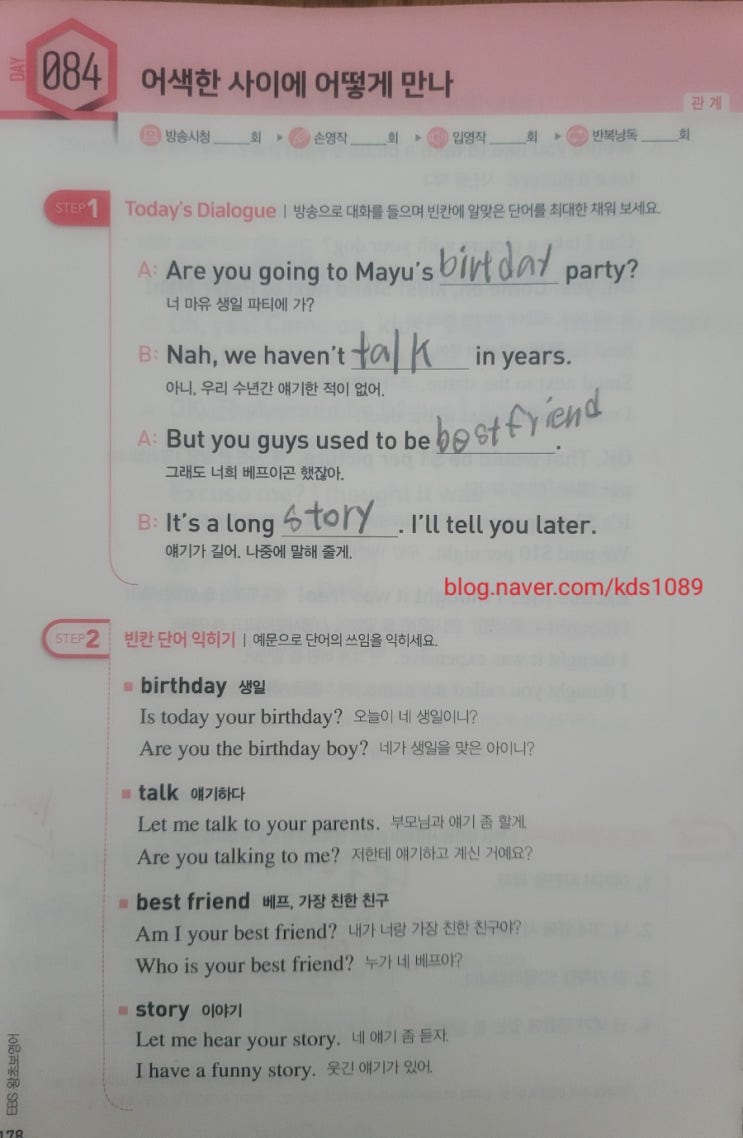 DAY
084
어색한 사이에 어떻게 만나
관계
방송시청 _____회 ▶ 손영작 _____회 ▶ 입영작 _____회 ▶ 반복낭독 _____회
STEP1 Today's Dialogue | 방송으로 대화를 들으며 빈칸에 알맞은 단어를 최대한 채워 보세요.
A: Are you going to Mayu's birtday party?
너 마유 생일 파티에 가?
B: Nah, we haven't talk in years.
아니, 우리 수년간 얘기한 적이 없어.
A: But you guys used to be bestfriend.
그래도 너희 베프이곤 했잖아.
B: It's a long story. I'll tell you later.
얘기가 길어. 나중에 말해 줄게.
blog.naver.com/kds1089
STEP2 빈칸 단어 익히기 | 예문으로 단어의 쓰임을 익히세요.
birthday 생일
Is today your birthday? 오늘이 네 생일이니?
Are you the birthday boy? 네가 생일을 맞은 아이니?
talk 얘기하다
Let me talk to your parents. 부모님과 얘기 좀 할게.
Are you talking to me? 저한테 얘기하고 계신 거예요?
best friend 베프, 가장 친한 친구
Am I your best friend? 내가 너랑 가장 친한 친구야?
Who is your best friend? 누가 네 베프야?
story 이야기
Let me hear your story. 네 얘기 좀 듣자.
I have a funny story. 웃긴 얘기가 있어.
EBS 왕초보영어
178